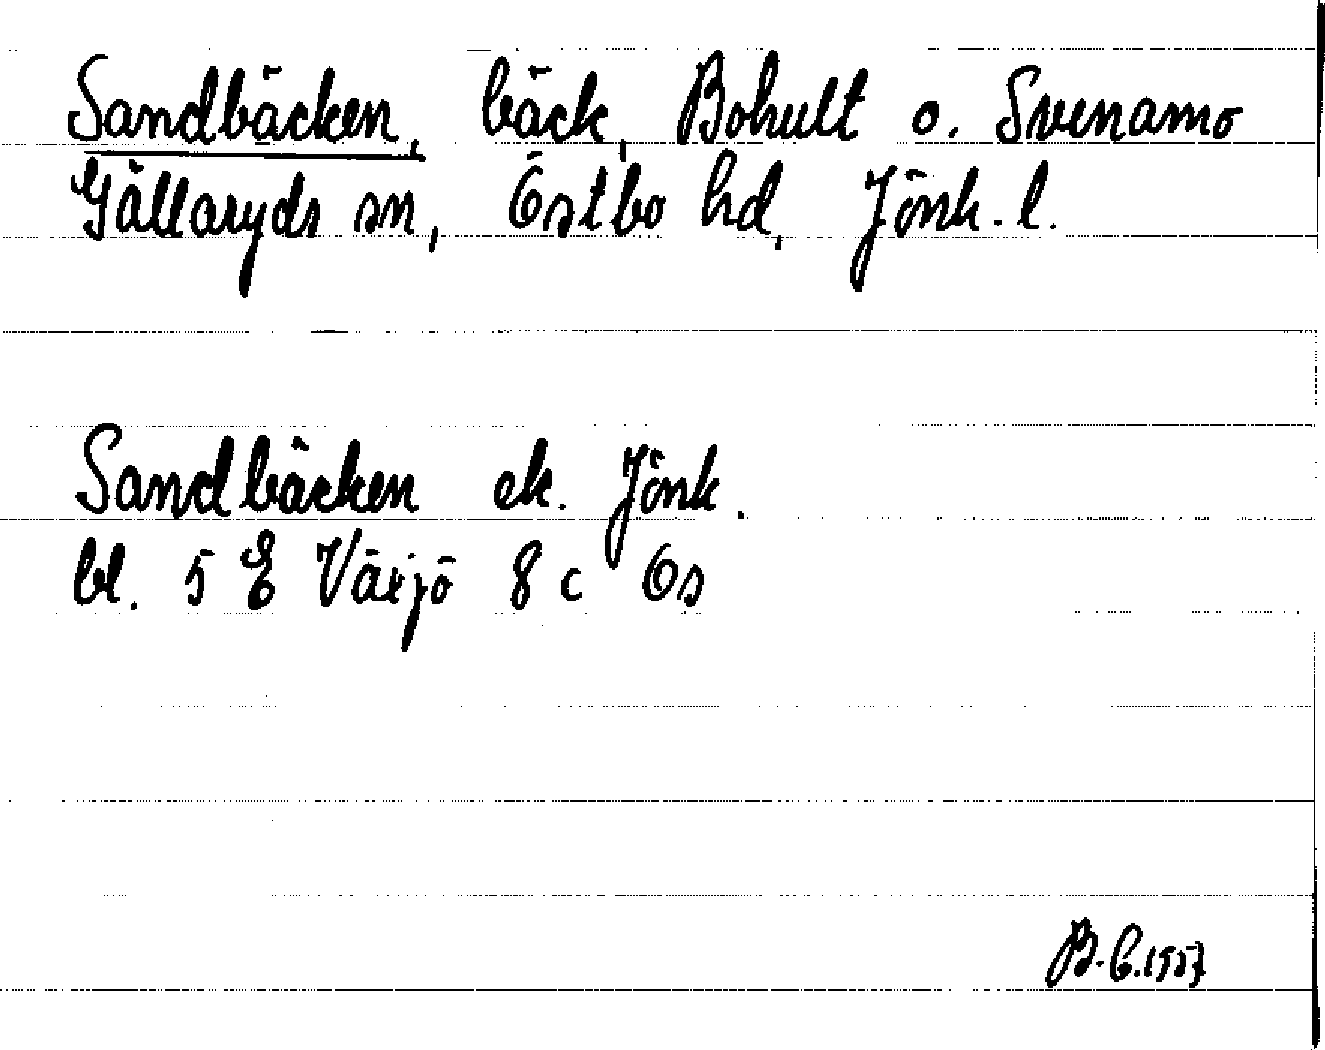 Sandbäcken, bäck, Bohult o. Svenamo
Gällaryds sn, Östbo hd, Jönk. l.
Sandbäcken ek. Jönk.
bl. 5 E Växjö 8 c Ös
B.C. 1957